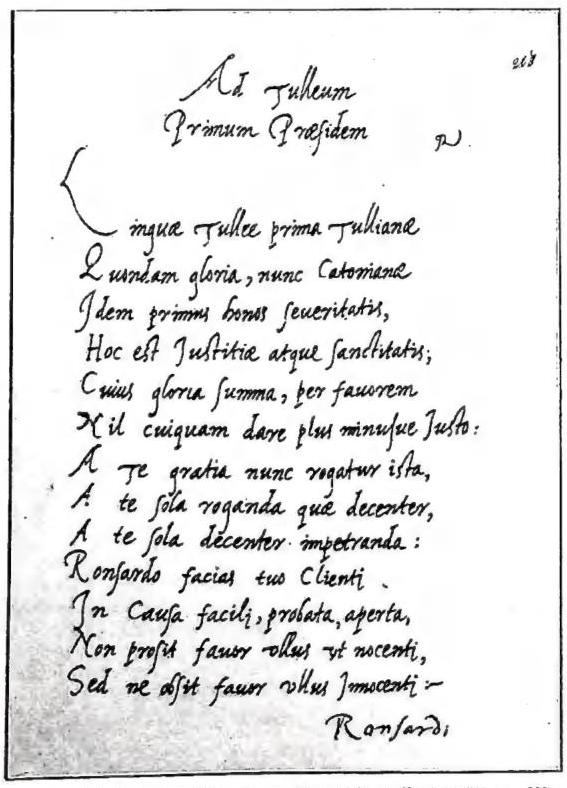 218
Ad Tulleum
Primum Præsidem
Linguæ Tullee prima Tullianæ
Quondam gloria, nunc Catonianæ
Idem primus honos seueritatis,
Hoc est Justitiæ atque sanctitatis;
Cuius gloria summa, per fauorem
Nil cuiquam dare plus minusue Justo:
A Te gratia nunc rogatur ista,
A te sola roganda quæ decenter,
A te sola decenter impetranda:
Ronsardo facias tuo Clienti
In Causa facili, probata, aperta,
Non prosit fauor ullus ut nocenti,
Sed ne obsit fauor ullus Innocenti:~
Ronsardi